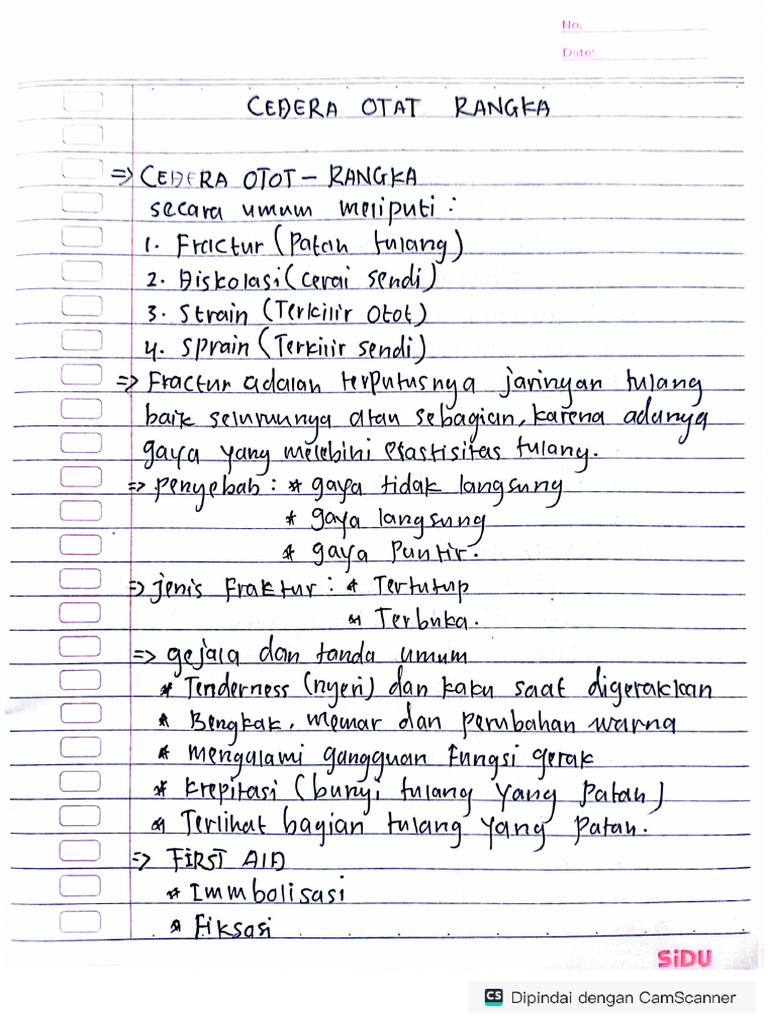 No.
Date:
CEDERA OTAT RANGKA
⇒ CEDERA OTOT - RANGKA
secara umum meliputi :
1. Fractur (Patah tulang)
2. Diskolasi (cerai sendi)
3. Strain (Terkilir Otot)
4. Sprain (Terkilir sendi)
⇒ Fractur adalah terputusnya jaringan tulang
baik seluruhnya atau sebagian, karena adanya
gaya yang melebihi elastisitas tulang.
⇒ penyebab : * gaya tidak langsung
* gaya langsung
* gaya Puntir.
⇒ jenis Fraktur : * Tertutup
* Terbuka.
⇒ gejala dan tanda umum
* Tenderness (nyeri) dan kaku saat digerakkan
* Bengkak, memar dan perubahan warna
* mengalami gangguan Fungsi gerak
* Krepitasi (bunyi tulang yang Patah)
* Terlihat bagian tulang yang patah.
⇒ FIRST AID
* Immbolisasi
* Fiksasi
SiDU
CS Dipindai dengan CamScanner